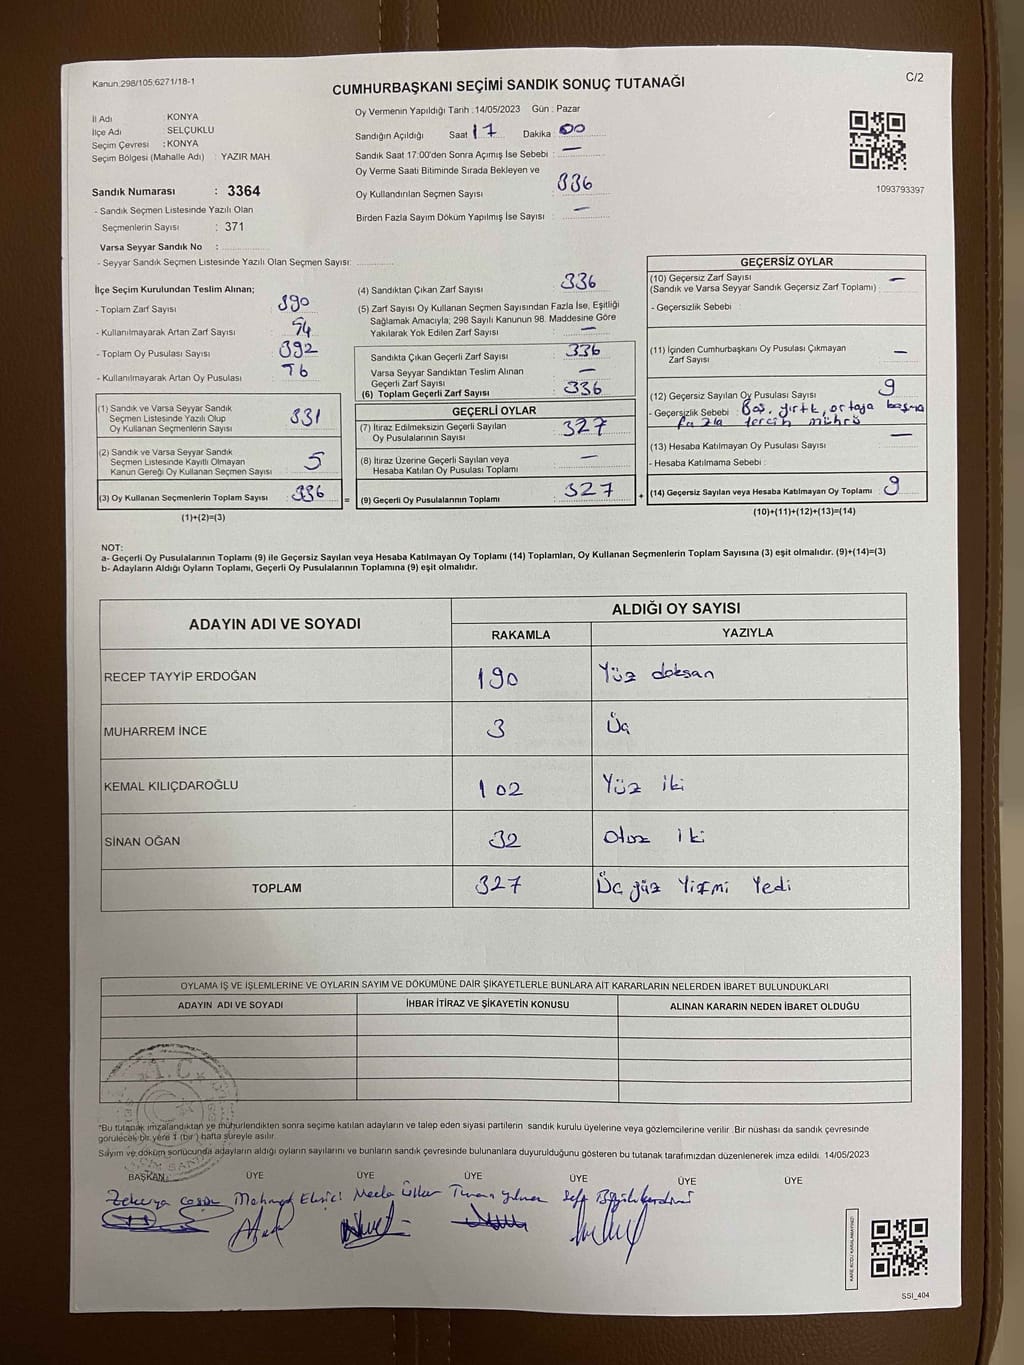 Kanun:298/105;6271/18-1
C/2
CUMHURBAŞKANI SEÇİMİ SANDIK SONUÇ TUTANAĞI
İl Adı : KONYA
İlçe Adı : SELÇUKLU
Seçim Çevresi : KONYA
Seçim Bölgesi (Mahalle Adı) : YAZIR MAH
Sandık Numarası : 3364
- Sandık Seçmen Listesinde Yazılı Olan
Seçmenlerin Sayısı : 371
Varsa Seyyar Sandık No :
- Seyyar Sandık Seçmen Listesinde Yazılı Olan Seçmen Sayısı:
Oy Vermenin Yapıldığı Tarih : 14/05/2023 Gün : Pazar
Sandığın Açıldığı Saat 17 Dakika 00
Sandık Saat 17:00'den Sonra Açımış İse Sebebi : —
Oy Verme Saati Bitiminde Sırada Bekleyen ve
Oy Kullandırılan Seçmen Sayısı : 336
Birden Fazla Sayım Döküm Yapılmış İse Sayısı : —
1093793397
İlçe Seçim Kurulundan Teslim Alınan;
- Toplam Zarf Sayısı : 390
- Kullanılmayarak Artan Zarf Sayısı : 54
- Toplam Oy Pusulası Sayısı : 392
- Kullanılmayarak Artan Oy Pusulası :
(1) Sandık ve Varsa Seyyar Sandık
Seçmen Listesinde Yazılı Olup
Oy Kullanan Seçmenlerin Sayısı : 331
(2) Sandık ve Varsa Seyyar Sandık
Seçmen Listesinde Kayıtlı Olmayan
Kanun Gereği Oy Kullanan Seçmen Sayısı : 5
(3) Oy Kullanan Seçmenlerin Toplam Sayısı : 336 =
(1)+(2)=(3)
(4) Sandıktan Çıkan Zarf Sayısı : 336
(5) Zarf Sayısı Oy Kullanan Seçmen Sayısından Fazla İse, Eşitliği
Sağlamak Amacıyla, 298 Sayılı Kanunun 98. Maddesine Göre
Yakılarak Yok Edilen Zarf Sayısı : —
Sandıkta Çıkan Geçerli Zarf Sayısı : 336
Varsa Seyyar Sandıktan Teslim Alınan
Geçerli Zarf Sayısı : —
(6) Toplam Geçerli Zarf Sayısı : 336
GEÇERLİ OYLAR
(7) İtiraz Edilmeksizin Geçerli Sayılan
Oy Pusulalarının Sayısı : 327
(8) İtiraz Üzerine Geçerli Sayılan veya
Hesaba Katılan Oy Pusulası Toplamı : —
(9) Geçerli Oy Pusulalarının Toplamı : 327 +
GEÇERSİZ OYLAR
(10) Geçersiz Zarf Sayısı
(Sandık ve Varsa Seyyar Sandık Geçersiz Zarf Toplamı) : —
- Geçersizlik Sebebi :
(11) İçinden Cumhurbaşkanı Oy Pusulası Çıkmayan
Zarf Sayısı : —
(12) Geçersiz Sayılan Oy Pusulası Sayısı : 9
- Geçersizlik Sebebi : Boş, yırtık, ortaya basma
fazla tercih mührü
(13) Hesaba Katılmayan Oy Pusulası Sayısı : —
- Hesaba Katılmama Sebebi :
(14) Geçersiz Sayılan veya Hesaba Katılmayan Oy Toplamı : 9
(10)+(11)+(12)+(13)=(14)
NOT:
a- Geçerli Oy Pusulalarının Toplamı (9) ile Geçersiz Sayılan veya Hesaba Katılmayan Oy Toplamı (14) Toplamları, Oy Kullanan Seçmenlerin Toplam Sayısına (3) eşit olmalıdır. (9)+(14)=(3)
b- Adayların Aldığı Oyların Toplamı, Geçerli Oy Pusulalarının Toplamına (9) eşit olmalıdır.
ADAYIN ADI VE SOYADI ALDIĞI OY SAYISI
RAKAMLA YAZIYLA
RECEP TAYYİP ERDOĞAN 190 Yüz doksan
MUHARREM İNCE 3 Üç
KEMAL KILIÇDAROĞLU 102 Yüz iki
SİNAN OĞAN 32 Otuz iki
TOPLAM 327 Üç yüz Yirmi Yedi
OYLAMA İŞ VE İŞLEMLERİNE VE OYLARIN SAYIM VE DÖKÜMÜNE DAİR ŞİKAYETLERLE BUNLARA AİT KARARLARIN NELERDEN İBARET BULUNDUKLARI
ADAYIN ADI VE SOYADI İHBAR İTİRAZ VE ŞİKAYETİN KONUSU ALINAN KARARIN NEDEN İBARET OLDUĞU
T.C.
*Bu tutanak imzalandıktan ve mühürlendikten sonra seçime katılan adayların ve talep eden siyasi partilerin sandık kurulu üyelerine veya gözlemcilerine verilir .Bir nüshası da sandık çevresinde
görülecek bir yere 1 (bir ) hafta süreyle asılır.
Sayım ve döküm sonucunda adayların aldığı oyların sayılarını ve bunların sandık çevresinde bulunanlara duyurulduğunu gösteren bu tutanak tarafımızdan düzenlenerek imza edildi. 14/05/2023
BAŞKAN ÜYE ÜYE ÜYE ÜYE ÜYE ÜYE
Zekerya Mahmud
KARE KODU KARALAMAYINIZ!
SSİ_404